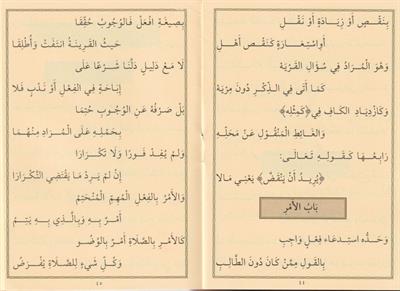 بِنَقْصٍ أَوْ زِيَادَةٍ أَوْ نَقْلِ
أَوِاسْتِعَارَةٍ كَنَقْصِ أَهْلِ
وَهْوَ الْمُرَادُ فِي سُؤَالِ الْقَرْيَهْ
كَمَا أَتَى فِي الذِّكْرِ دُونَ مِرْيَهْ
وَكَازْدِيَادِ الْكَافِ فِي ﴿كَمِثْلِهِ﴾
وَالْغَائِطِ الْمَنْقُولِ عَنْ مَحَلِّهِ
رَابِعُهَا كَقَوْلِهِ تَعَالَى:
﴿يُرِيدُ أَنْ يَنْقَضَّ﴾ يَعْنِي مَالَا
بَابُ الْأَمْرِ
وَحَدُّهُ اسْتِدْعَاءُ فِعْلٍ وَاجِبِ
بِالْقَوْلِ مِمَّنْ كَانَ دُونَ الطَّالِبِ
٤٤
بِصِيغَةِ افْعَلْ فَالْوُجُوبُ حُقِّقَا
حَيْثُ الْقَرِينَةُ انْتَفَتْ وَأُطْلِقَا
لَا مَعْ دَلِيلٍ دَلَّنَا شَرْعًا عَلَى
إِبَاحَةٍ فِي الْفِعْلِ أَوْ نَدْبٍ فَلَا
بَلْ صَرْفُهُ عَنِ الْوُجُوبِ حُتِمَا
بِحَمْلِهِ عَلَى الْمُرَادِ مِنْهُمَا
وَلَمْ يُفِدْ فَوْرًا وَلَا تَكْرَارَا
إِنْ لَمْ يَرِدْ مَا يَقْتَضِي التَّكْرَارَا
وَالْأَمْرُ بِالْفِعْلِ الْمُهِمِّ الْمُنْحَتِمْ
أَمْرٌ بِهِ وَبِالَّذِي بِهِ يَتِمْ
كَالْأَمْرِ بِالصَّلَاةِ أَمْرٌ بِالْوُضُو
وَكُلِّ شَيْءٍ لِلصَّلَاةِ يُفْرَضُ
٤٥